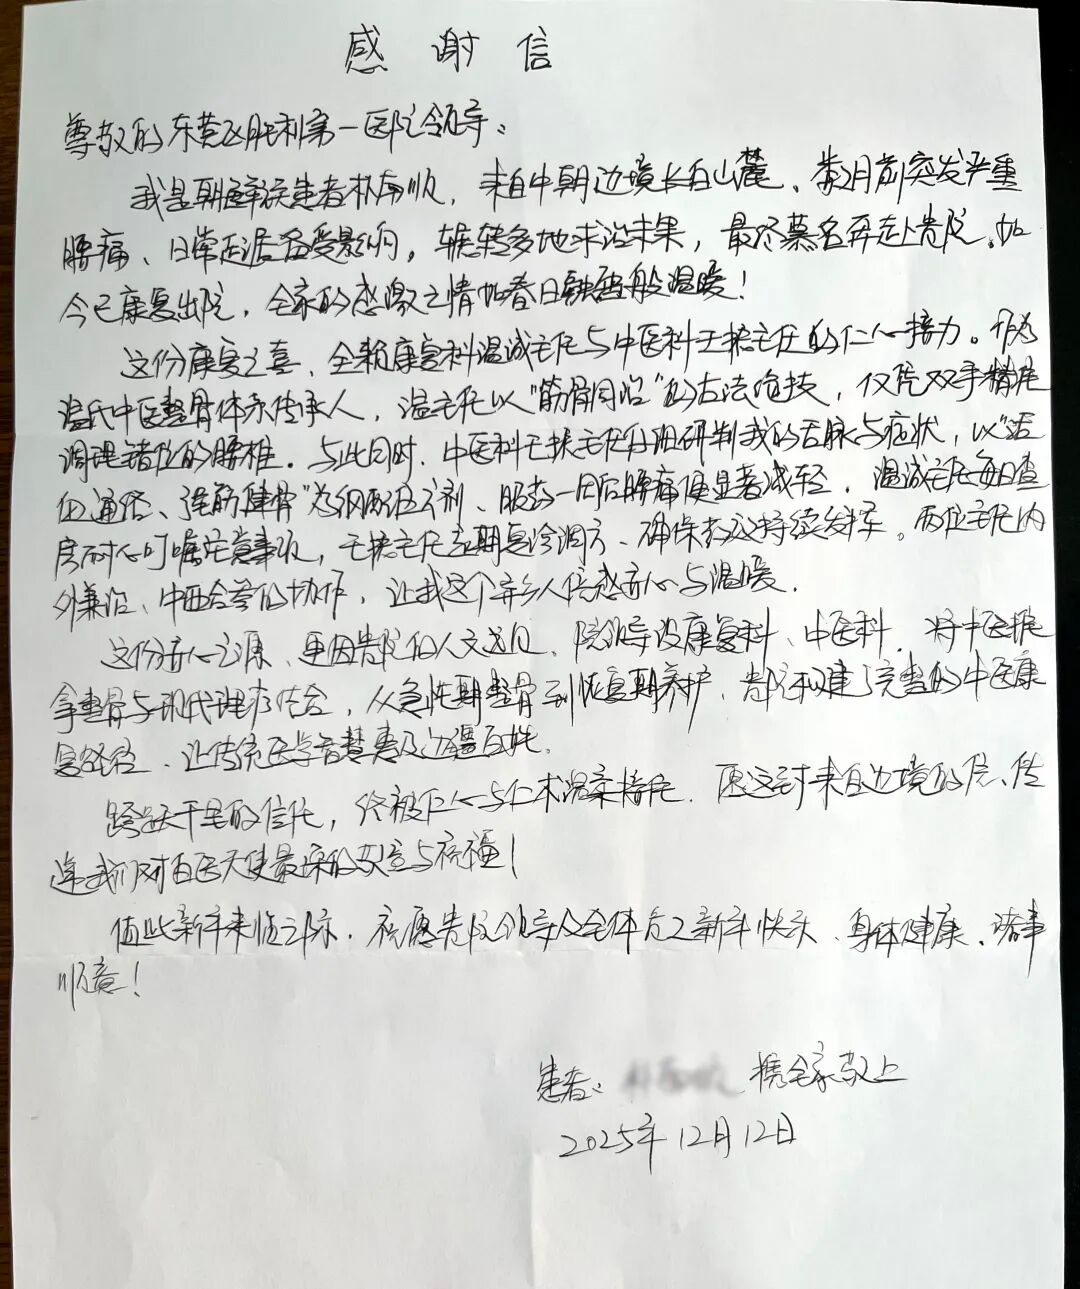 感谢信
尊敬的东莞胜利第一医院领导：
我是朝鲜族患者朴南顺，来自中朝边境长白山麓、数月前突发严重
腰痛、日常起居备受影响，辗转多地求治未果，最终慕名奔赴贵院。如
今已康复出院，全家的感激之情如春日融雪般温暖！
这份康复之喜，全赖康复科温诚主任与中医科王振主任的仁心接力。作为
温氏中医整骨体系传承人，温主任以"筋骨同治"的古法绝技，仅凭双手精准
调理错位的腰椎。与此同时，中医科王振主任仔细研判我的舌脉与症状，以"活
血通络、强筋健骨"为纲配伍方剂、服药一周后腰痛便显著减轻，温诚主任每日查
房耐心叮嘱注意事项，王振主任定期复诊调方、确保药效持续发挥。两位主任内
外兼治、中西合参的协作，让我这个异乡人倍感齐心与温暖。
这份齐心之源、更因贵院的人文远见，院领导设康复科、中医科，将中医推
拿整骨与现代理疗结合，从急性期整骨到恢复期养护，贵院构建了完整的中医康
复路径、让传统医学智慧惠及边疆百姓。
跨越千里的信任，终被仁心与仁术温柔接住。愿这封来自边境的信、传
递我们对白衣天使最深的敬意与祝福！
值此新年来临之际，祝愿贵院领导及全体员工新年快乐、身体健康、诸事
顺意！
患者： 携全家敬上
2025年12月12日